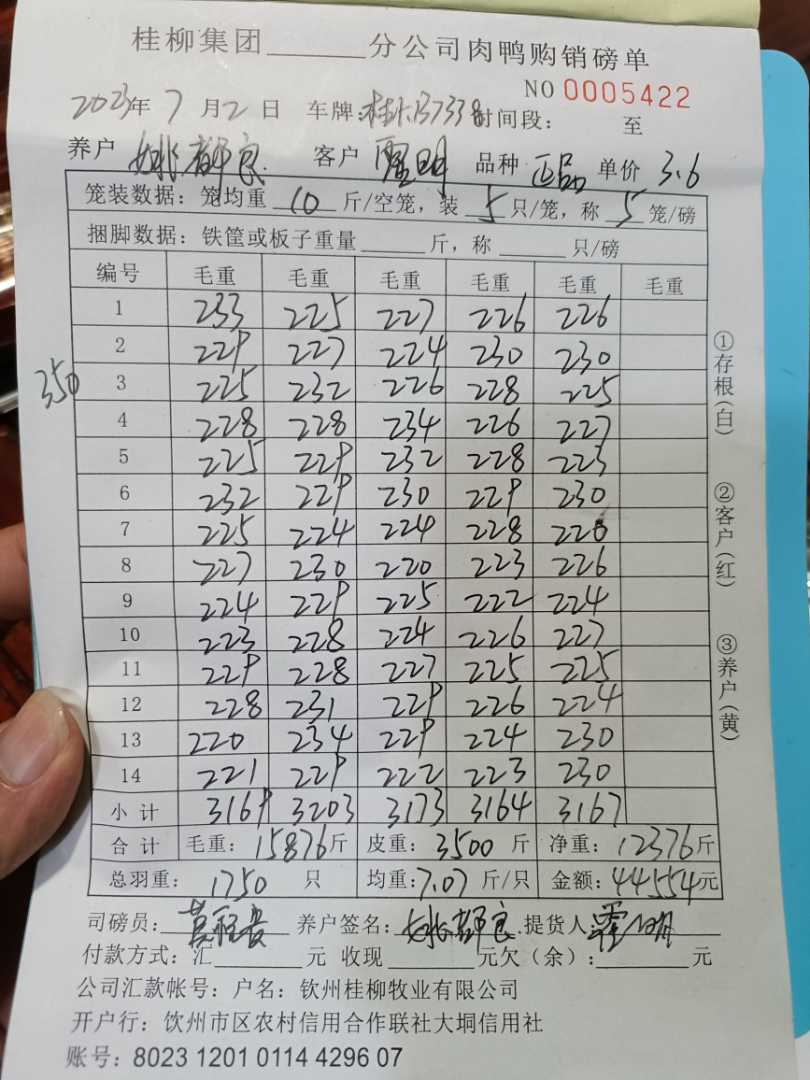 桂柳集团______分公司肉鸭购销磅单
NO 0005422
2023年 7 月 2 日 车牌: 桂 B7338 时间段: 至
养户 姚都良 客户 明 品种 正品 单价 3.6
笼装数据: 笼均重 10 斤/空笼, 装 5 只/笼, 称 5 笼/磅
捆脚数据: 铁筐或板子重量______斤, 称______只/磅
编号 毛重 毛重 毛重 毛重 毛重 毛重
1 233 225 227 226 226
2 229 227 224 230 230
350
3 225 232 226 228 225
4 228 228 234 226 227
5 225 229 232 228 223
6 232 229 230 229 230
7 225 224 224 228 220
8 227 230 220 223 226
9 224 229 225 222 224
10 223 228 224 226 227
11 229 228 227 225 225
12 228 231 229 226 224
13 220 234 229 224 230
14 221 229 222 223 230
小计 3169 3203 3173 3164 3167
合计 毛重: 15876斤 皮重: 3500 斤 净重: 12376斤
总羽重: 1750 只 均重: 7.07 斤/只 金额: 44554元
司磅员: 养户签名: 姚都良 提货人: 明
付款方式: 汇______元 收现______元欠(余):______元
公司汇款帐号: 户名: 钦州桂柳牧业有限公司
开户行: 饮州市区农村信用合作联社大垌信用社
账号: 8023 1201 0114 4296 07
①存根(白)
②客户(红)
③养户(黄)